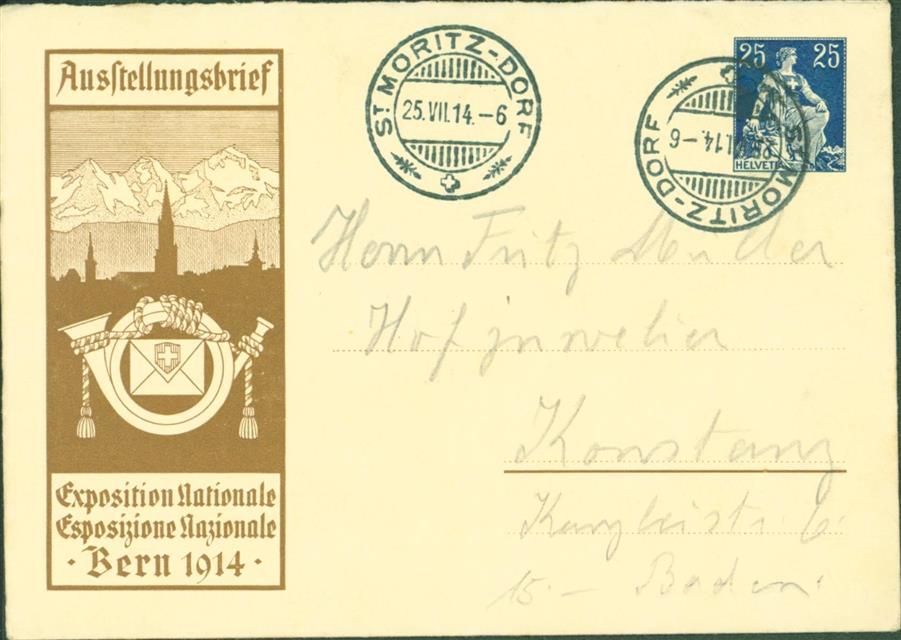 Ausstellungsbrief
Exposition Nationale
Esposizione Nazionale
· Bern 1914 ·
ST. MORITZ-DORF
25.VII.14.–6
ST. MORITZ-DORF
VII.14.–6
25 25
HELVETIA
Herrn Fritz Müller
Hofjuwelier
Konstanz
Kanzleistr. 6.
15.– Baden.